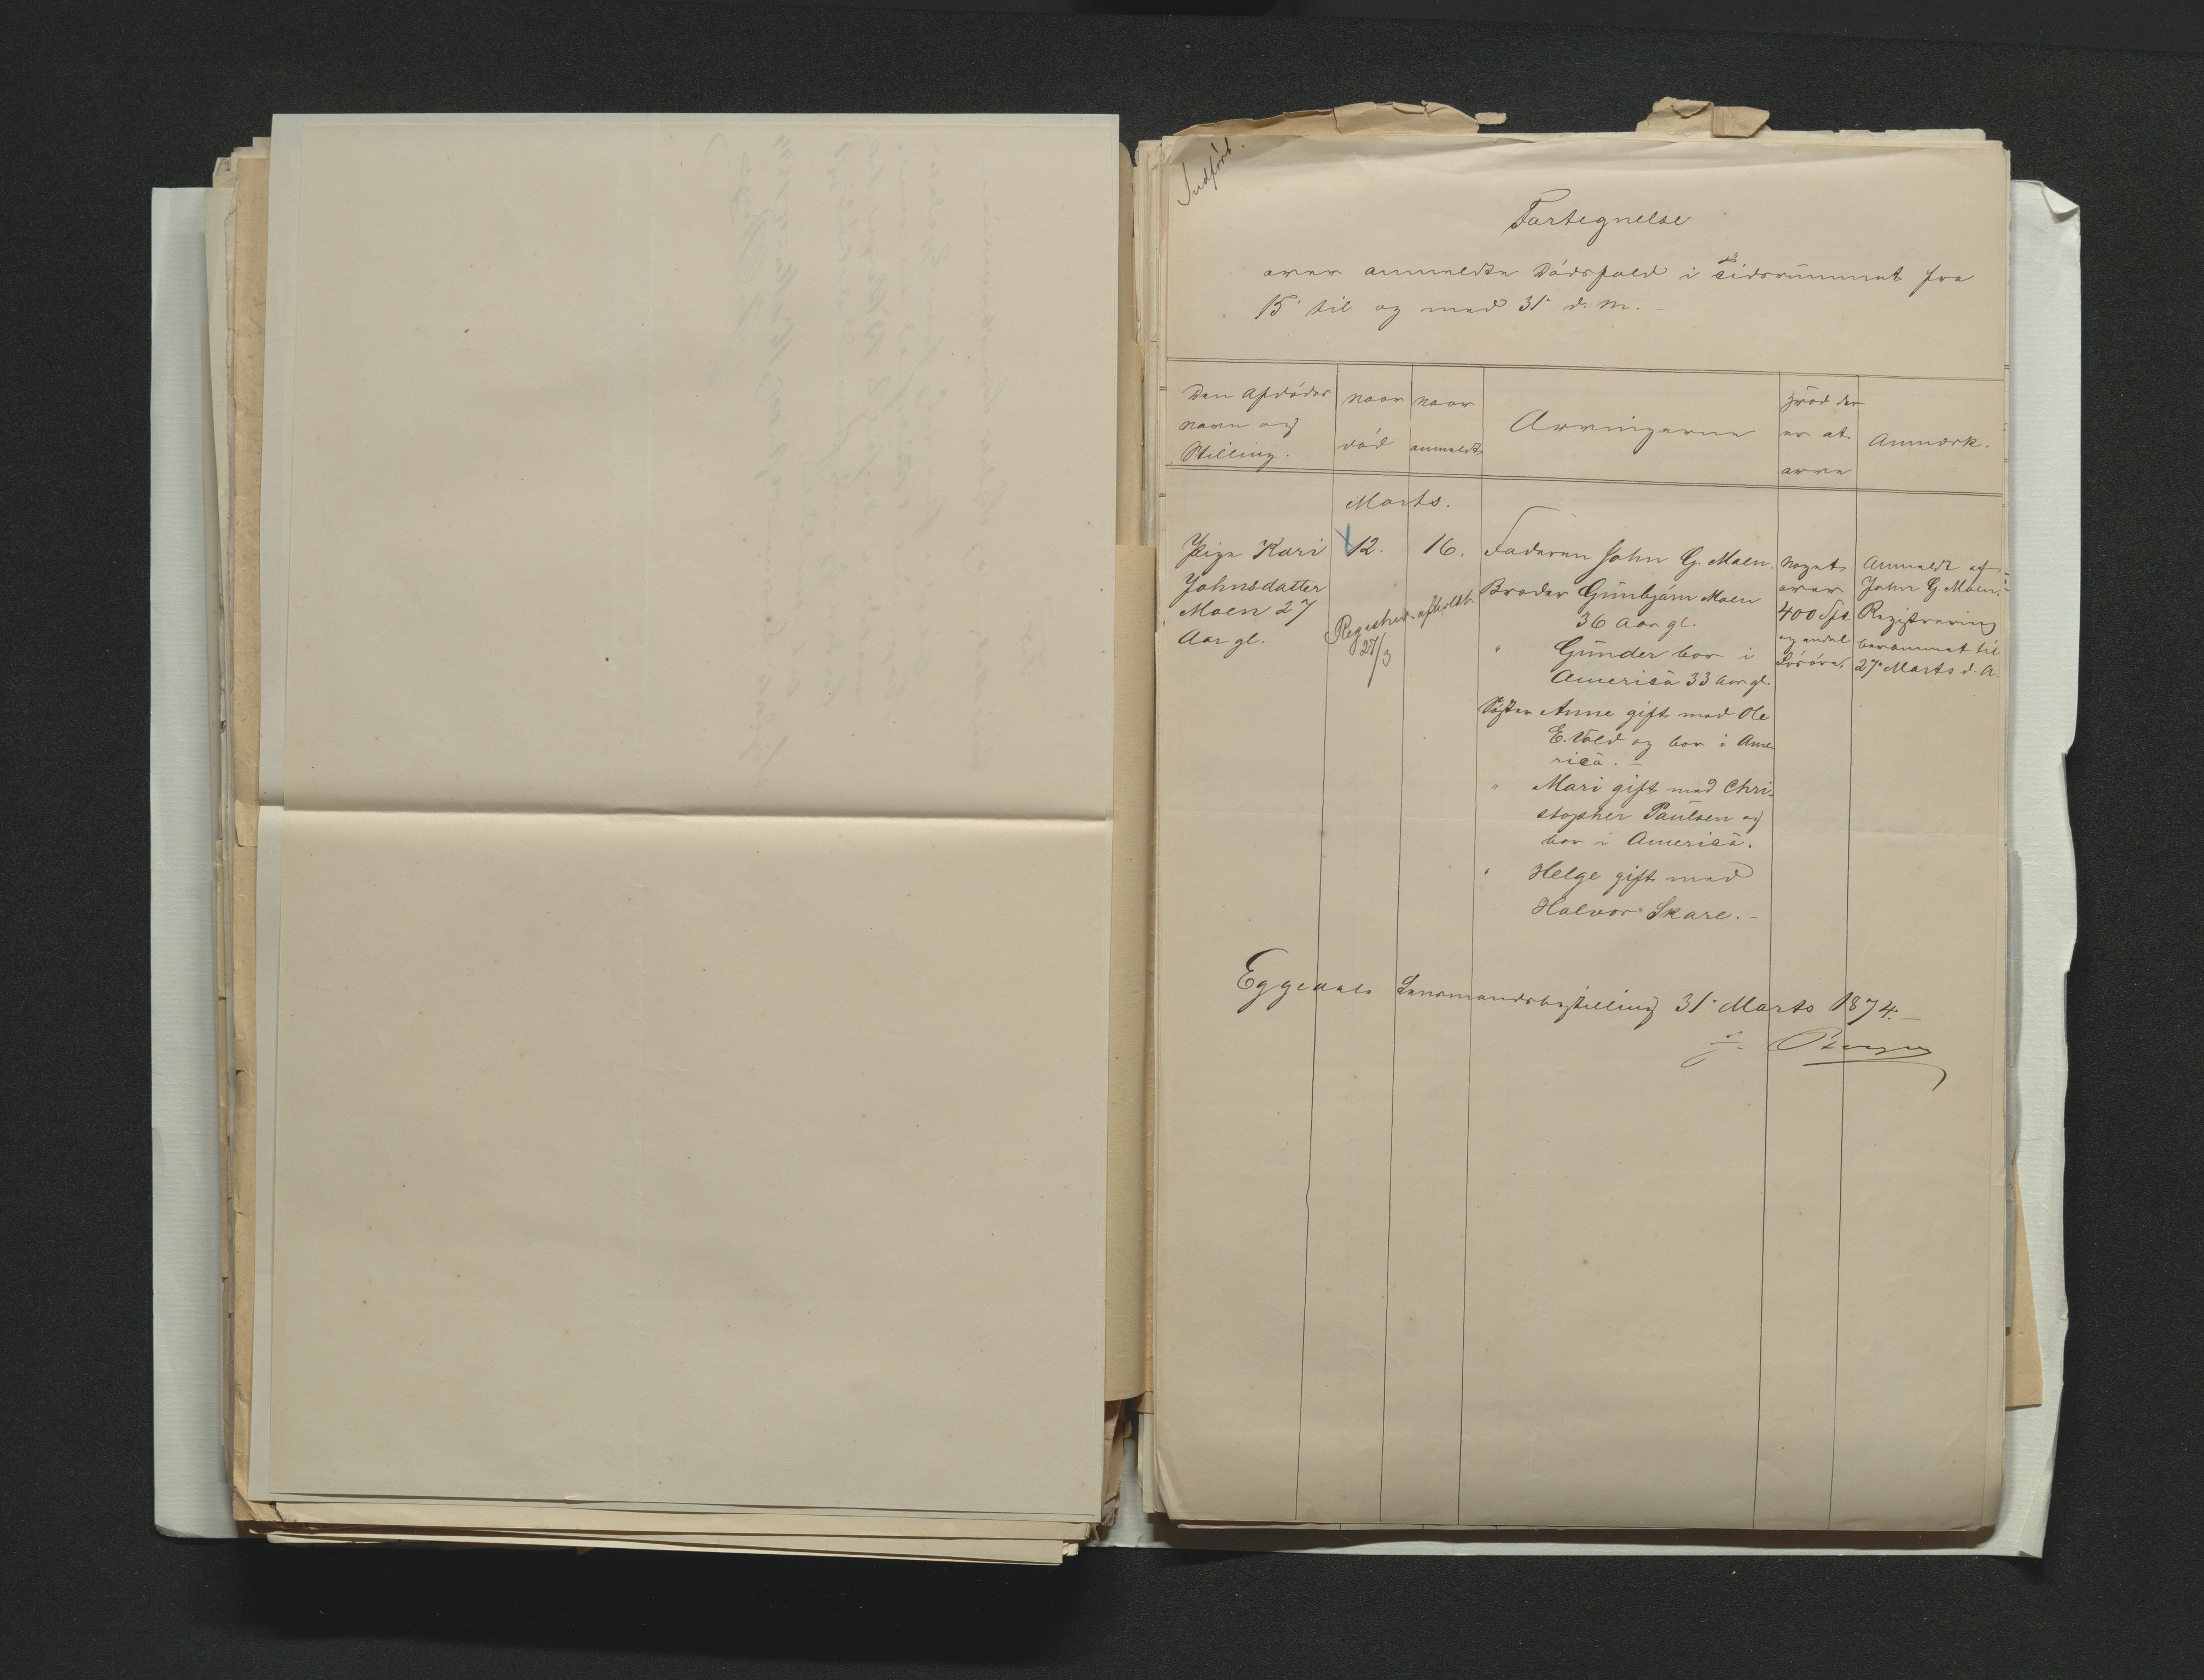 Indført.
Fortegnelse
over anmeldte Dødsfald i Tidsrummet fra
15' til og med 31' d. M. –
Den Afdødes
Navn og
Stilling.
Naar
død
Naar
anmeldt
Arvingerne
Hvad der
er at
arve
Anmærk.
Marts.
Pige Kari
Johnsdatter
Moen 27
Aar gl.
12.
16.
Registrer. afholdt
27/3
Faderen John G. Moen.
Broder Gunbjørn Moen
36 Aar gl.
" Gunder bor i
America 33 Aar gl.
Søster Anne gift med Ole
E. Vold og bor i Ame-
rica. –
" Mari gift med Chri-
stopher Paulsen og
bor i America.
" Helge gift med
Halvor Skare. –
Noget
over
400 Spd
og endel
Løsøre.
Anmeldt af
John G. Moen. –
Registrering
berammet til
27' Marts d. A.
Eggedals Lensmandsbestilling 31' Marts 1874. –